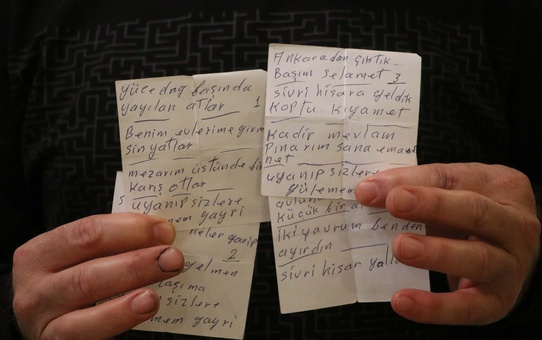 yüce dag başında
yayılan atlar 1
Benim evlerime girm
sin yatlar
mezarım üstünde bir
Karış otlar
uyanıp sizlere
mem gayri
neler garip
2
gelmen
aşıma
sizlere
mem gayri
Ankaradan çıktık
Başım selamet 3
sivri hisara geldik
KOPTU Kıyamet
Kadir mevlam
Pınarım sana emane
net
uyanıp sizlere
gülemem
küçük bir
iki yavrum benden
ayırdın
sivri hisar